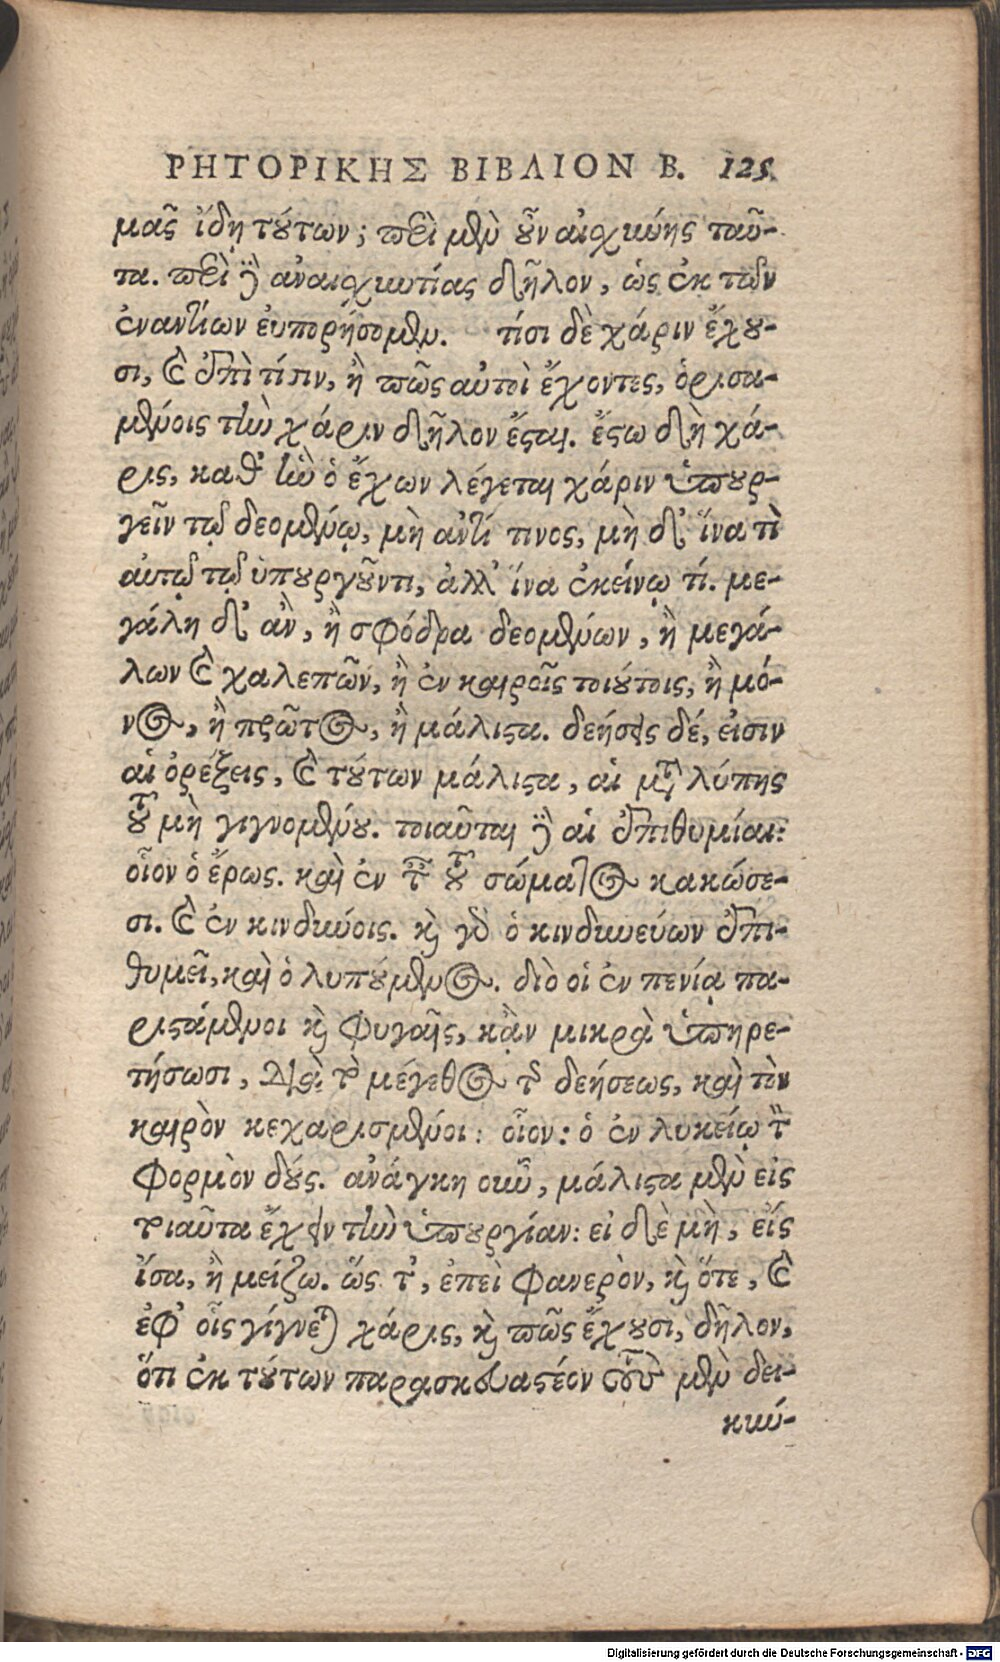 ΡΗΤΟΡΙΚΗΣ ΒΙΒΛΙΟΝ Β. 125
μας ἴδῃ τούτων; περὶ μὲν οὖν αἰσχύνης ταῦ-
τα. περὶ δὲ ἀναισχυντίας δῆλον, ὡς ἐκ τῶν
ἐναντίων εὐπορήσομεν. τίσι δὲ χάριν ἔχου-
σι, καὶ ἐπὶ τίσιν, ἢ πῶς αὐτοὶ ἔχοντες, ὁρισα-
μένοις τὴν χάριν δῆλον ἔσται. ἔστω δὴ χά-
ρις, καθ' ἣν ὁ ἔχων λέγεται χάριν ὑπουρ-
γεῖν τῷ δεομένῳ, μὴ ἀντί τινος, μὴ δ' ἵνα τὶ
αὐτῷ τῷ ὑπουργοῦντι, ἀλλ' ἵνα ἐκείνῳ τί. με-
γάλη δ' ἂν, ἢ σφόδρα δεομένων, ἢ μεγά-
λων καὶ χαλεπῶν, ἢ ἐν καιροῖς τοιούτοις, ἢ μό-
νος, ἢ πρῶτος, ἢ μάλιστα. δεήσεις δέ, εἰσιν
αἱ ὀρέξεις, καὶ τούτων μάλιστα, αἱ μετὰ λύπης
τοῦ μὴ γιγνομένου. τοιαῦται δὲ αἱ ἐπιθυμίαι:
οἷον ὁ ἔρως. καὶ ἐν ταῖς τοῦ σώματος κακώσε-
σι. καὶ ἐν κινδύνοις. καὶ γὰρ ὁ κινδυνεύων ἐπι-
θυμεῖ, καὶ ὁ λυπούμενος. διὸ οἱ ἐν πενίᾳ πα-
ριστάμενοι καὶ φυγαῖς, κἂν μικρὰ ὑπηρε-
τήσωσι, διὰ τὸ μέγεθος τῆς δεήσεως, καὶ τὸν
καιρὸν κεχαρισμένοι: οἷον: ὁ ἐν λυκείῳ τὸν
φορμὸν δούς. ἀνάγκη οὖν, μάλιστα μὲν εἰς
τοιαῦτα ἔχειν τὴν ὑπουργίαν: εἰ δὲ μὴ, εἰς
ἴσα, ἢ μείζω. ὥς τ', ἐπεὶ φανερὸν, καὶ ὅτε, καὶ
ἐφ' οἷς γίγνεται χάρις, καὶ πῶς ἔχουσι, δῆλον,
ὅτι ἐκ τούτων παρασκευαστέον τοὺς μὲν δει-
κνύ-
Digitalisierung gefördert durch die Deutsche Forschungsgemeinschaft - DFG